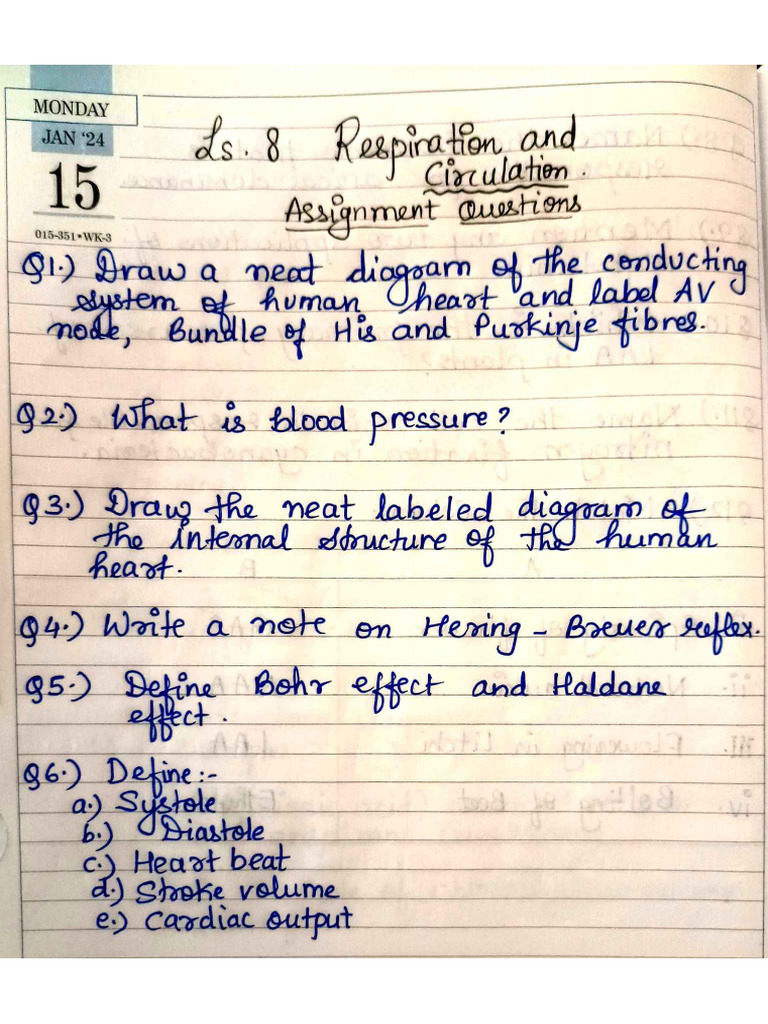 MONDAY
JAN '24
15
015-351•WK-3
Ls. 8 Respiration and
Circulation.
Assignment Questions
Q1.) Draw a neat diagram of the conducting
system of human heart and label AV
node, Bundle of His and Purkinje fibres.
Q2.) What is blood pressure?
Q3.) Draw the neat labeled diagram of
the internal structure of the human
heart.
Q4.) Write a note on Hering - Breuer reflex.
Q5.) Define Bohr effect and Haldane
effect.
Q6.) Define:-
a.) Systole
b.) Diastole
c.) Heart beat
d.) Stroke volume
e.) Cardiac output